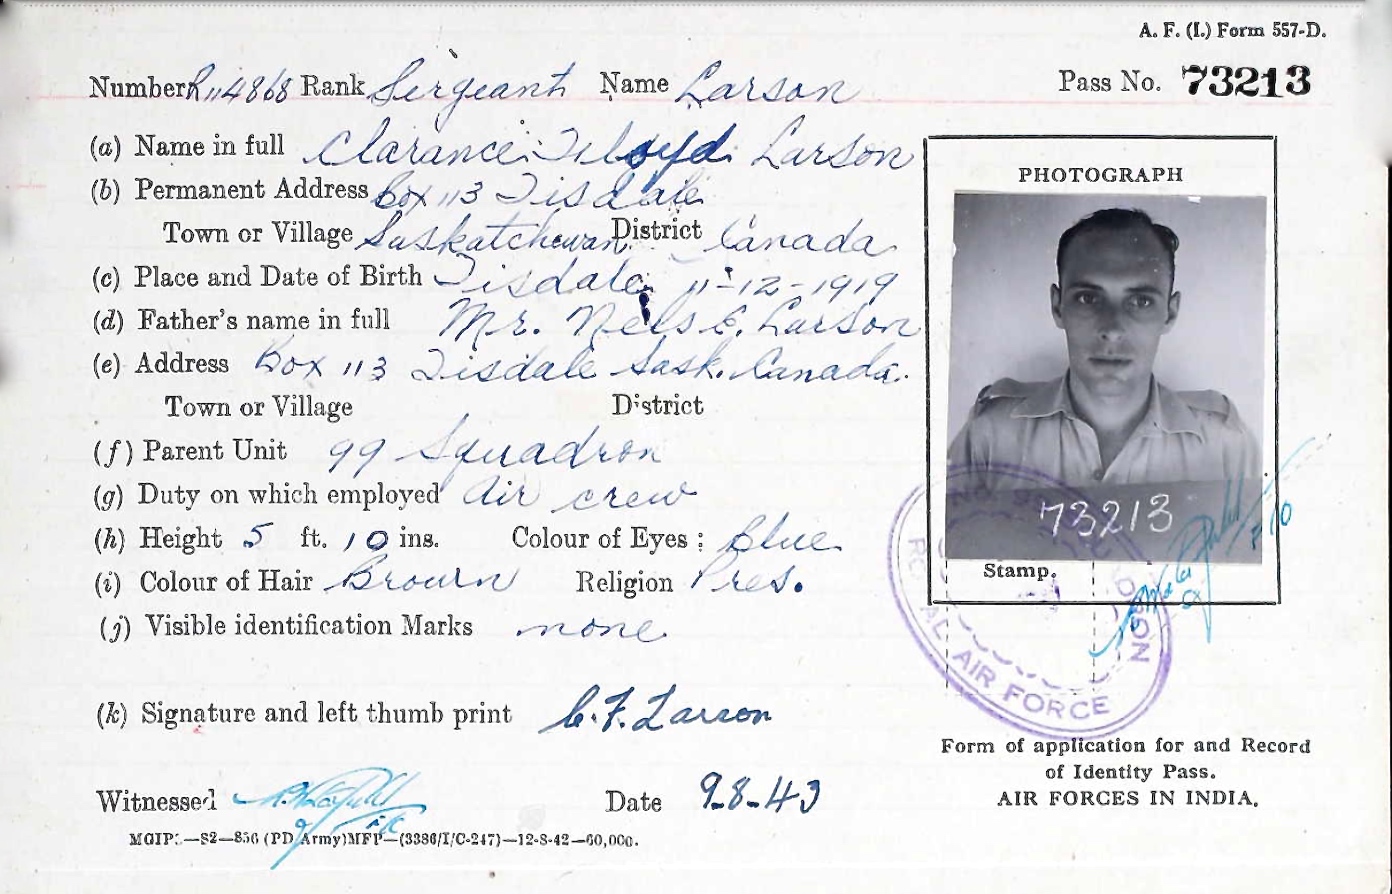 A. F. (I.) Form 557-D.
Number R114868 Rank Sergeant Name Larson Pass No. 73213
(a) Name in full Clarance Floyd Larson
(b) Permanent Address Box 113 Tisdale
Town or Village Saskatchewan District Canada
(c) Place and Date of Birth Tisdale 11-12-1919
(d) Father's name in full Mr. Nels E. Larson
(e) Address Box 113 Tisdale Sask. Canada.
Town or Village District
(f) Parent Unit 99 Squadron
(g) Duty on which employed Air crew
(h) Height 5 ft. 10 ins. Colour of Eyes : Blue
(i) Colour of Hair Brown Religion Pres.
(j) Visible identification Marks none
(k) Signature and left thumb print C.F. Larson
Witnessed Date 9-8-43
MGIP.—S2—856 (PD Army)MFP—(3386/I/C-247)—12-8-42—60,000.
PHOTOGRAPH
73213
Stamp.
ROYAL AIR FORCE
Form of application for and Record
of Identity Pass.
AIR FORCES IN INDIA.